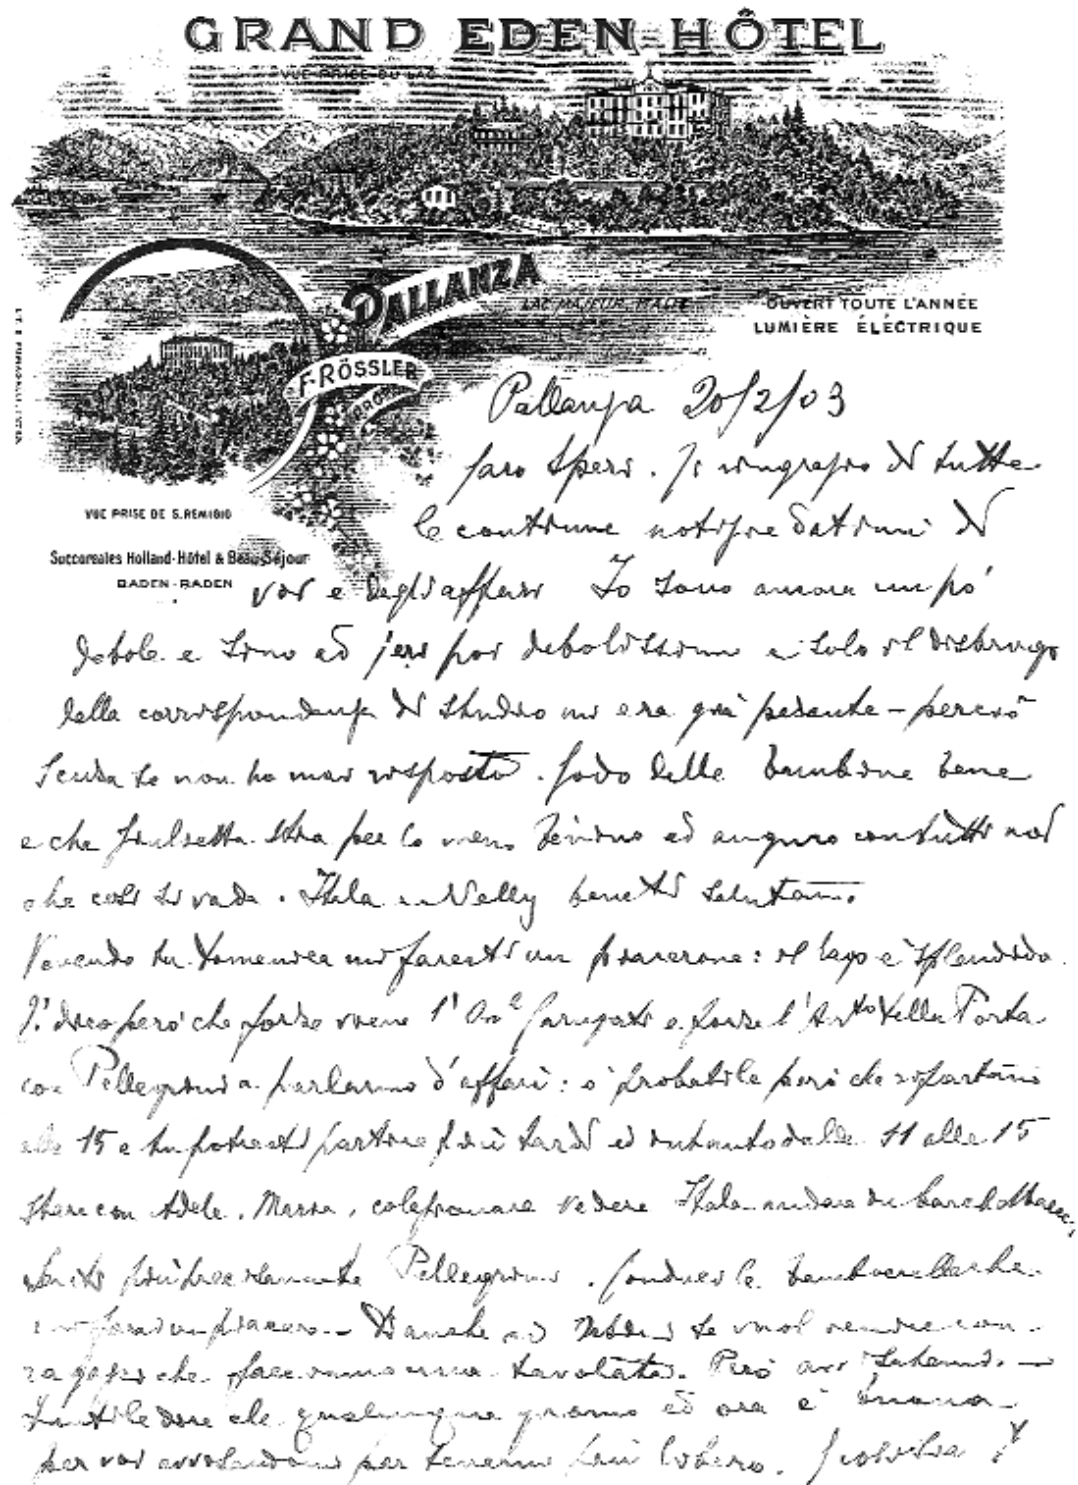 GRAND EDEN HÔTEL
VUE PRISE DU LAC
PALLANZA
LAC MAJEUR ITALIE
OUVERT TOUTE L'ANNÉE
LUMIÈRE ÉLÉCTRIQUE
F. RÖSSLER
PROPR.
VUE PRISE DE S. REMIGIO
Succursales Holland-Hôtel & Beau-Séjour
BADEN-BADEN
Pallanza 20/2/03
Caro Speri. Ti ringrazio di tutte
le continue notizie datemi di
voi e degli affari Io sono ancora un pó
debole e sino ad jeri poi debolissimo e solo il disbrigo
della corrispondenza di studio mi era già pesante – perciò
scusa se non ho mai risposto. Godo delle bambine bene
e che Giulietta stia per lo meno benino ed auguro con tutti noi
che così si vada. Itala e Nelly salutano.
Venendo tu domenica mi faresti un piacerone: il lago è splendido.
Ti dico però che forse viene l' On.e Carugati e forse l' Della Porta
con Pellegrini a parlarmi d'affari: è probabile però che ripartano
alle 15 e tu potresti partire più tardi ed intanto dalle 11 alle 15
stare con Adele, Maria, colazionare vedere Itala andare in
più precisamente Pellegrini. Conduci le che
mi farai un piacere – Dì anche ad se vuol venire con
ragazzi che faremmo una tavolata. Però –
Inutile dire che qualunque giorno ed ora è buona
per voi avvisandomi per tenermi più libero.